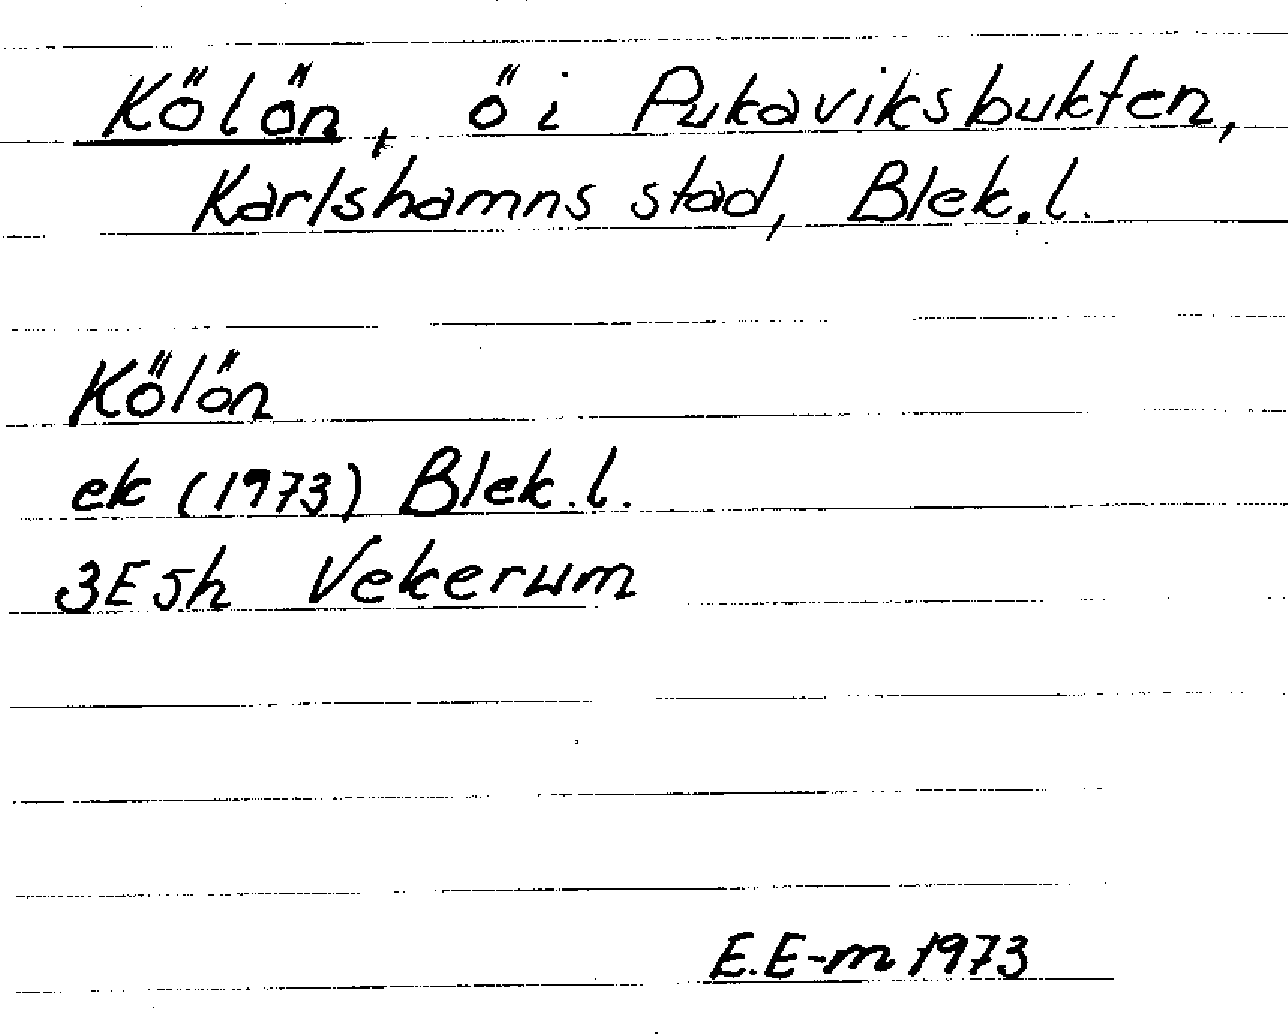 Kölön, ö i Pukaviksbukten,
Karlshamns stad, Blek. l.
Kölön
ek (1973) Blek. l.
3E5h Vekerum
E.E-m 1973